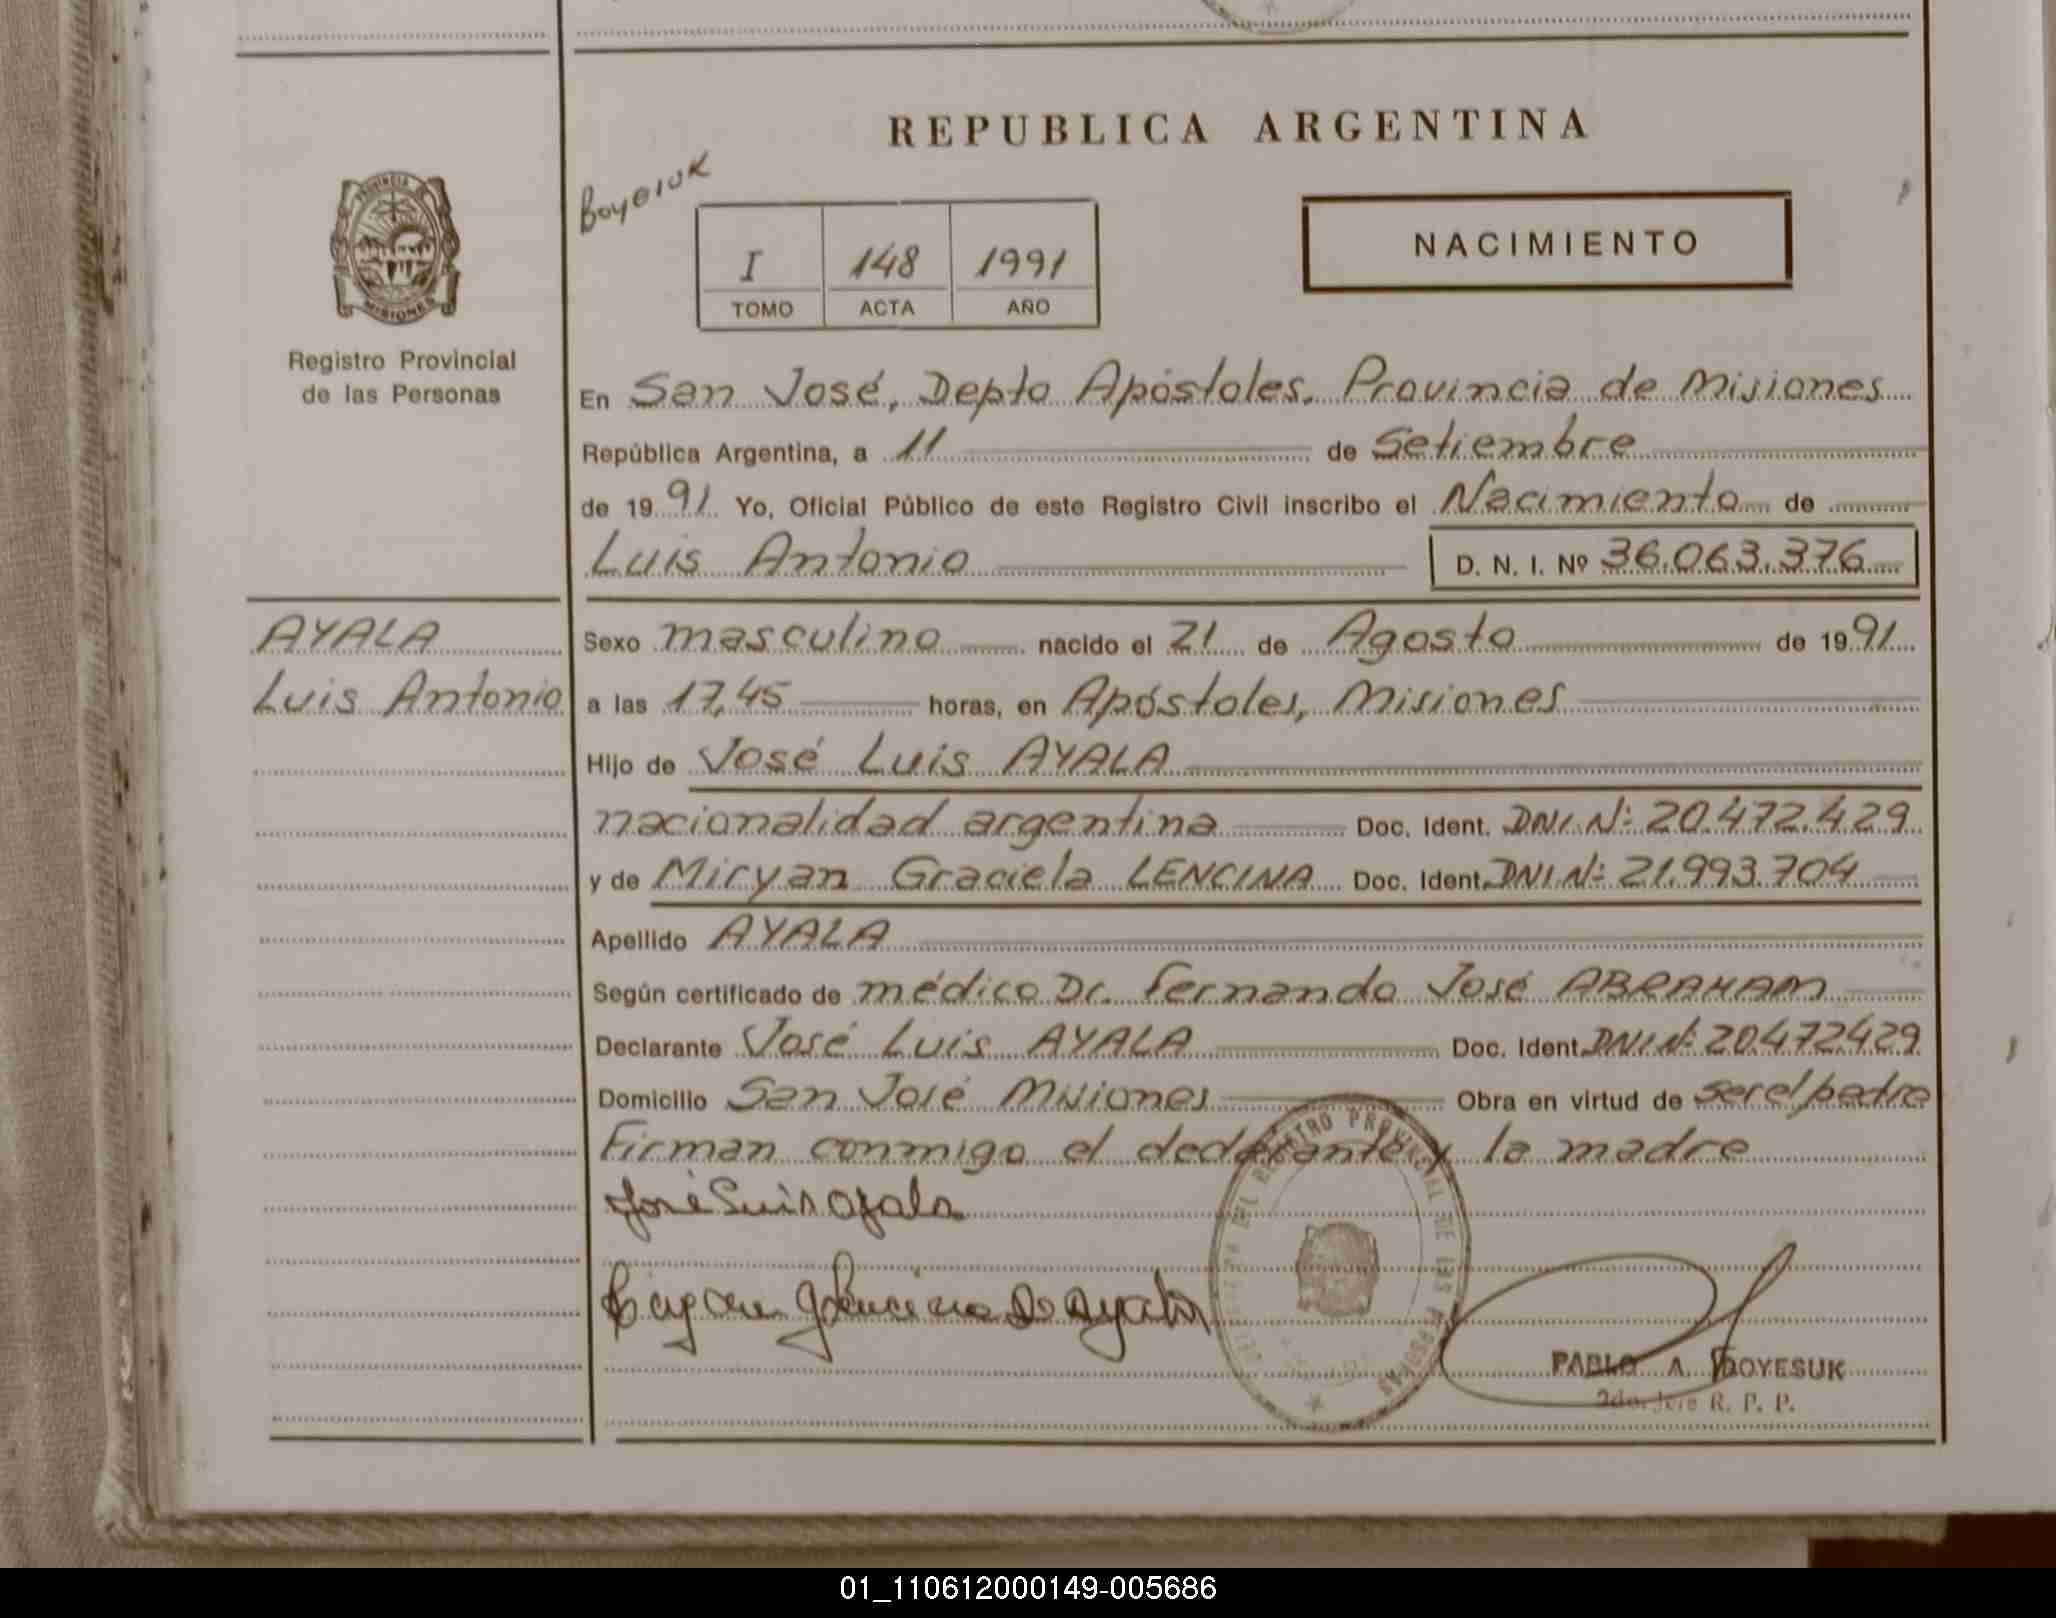 REPUBLICA ARGENTINA
Boyesuk
NACIMIENTO
I 148 1991
TOMO ACTA AÑO
PROVINCIA DE
MISIONES
Registro Provincial
de las Personas
En San José, Depto Apóstoles. Provincia de Misiones
República Argentina, a 11 de Setiembre
de 1991 Yo, Oficial Público de este Registro Civil inscribo el Nacimiento de
Luis Antonio D. N. I. Nº 36.063.376
AYALA
Luis Antonio
Sexo masculino nacido el 21 de Agosto de 1991
a las 17,45 horas, en Apóstoles, Misiones
Hijo de José Luis AYALA
nacionalidad argentina Doc. Ident. DNI.Nº 20.472.429
y de Miryan Graciela LENCINA Doc. Ident. DNI Nº 21.993.704
Apellido AYALA
Según certificado de médico Dr. Fernando José ABRAHAM
Declarante José Luis AYALA Doc. Ident. DNI Nº 20.472429
Domicilio San José Misiones Obra en virtud de ser el padre
Firman conmigo el declarante y la madre
José Luis Ayala
Lencina de Ayala
REGISTRO PROVINCIAL DE LAS PERSONAS
PABLO A. BOYESUK
2do. Jefe R. P. P.
01_110612000149-005686